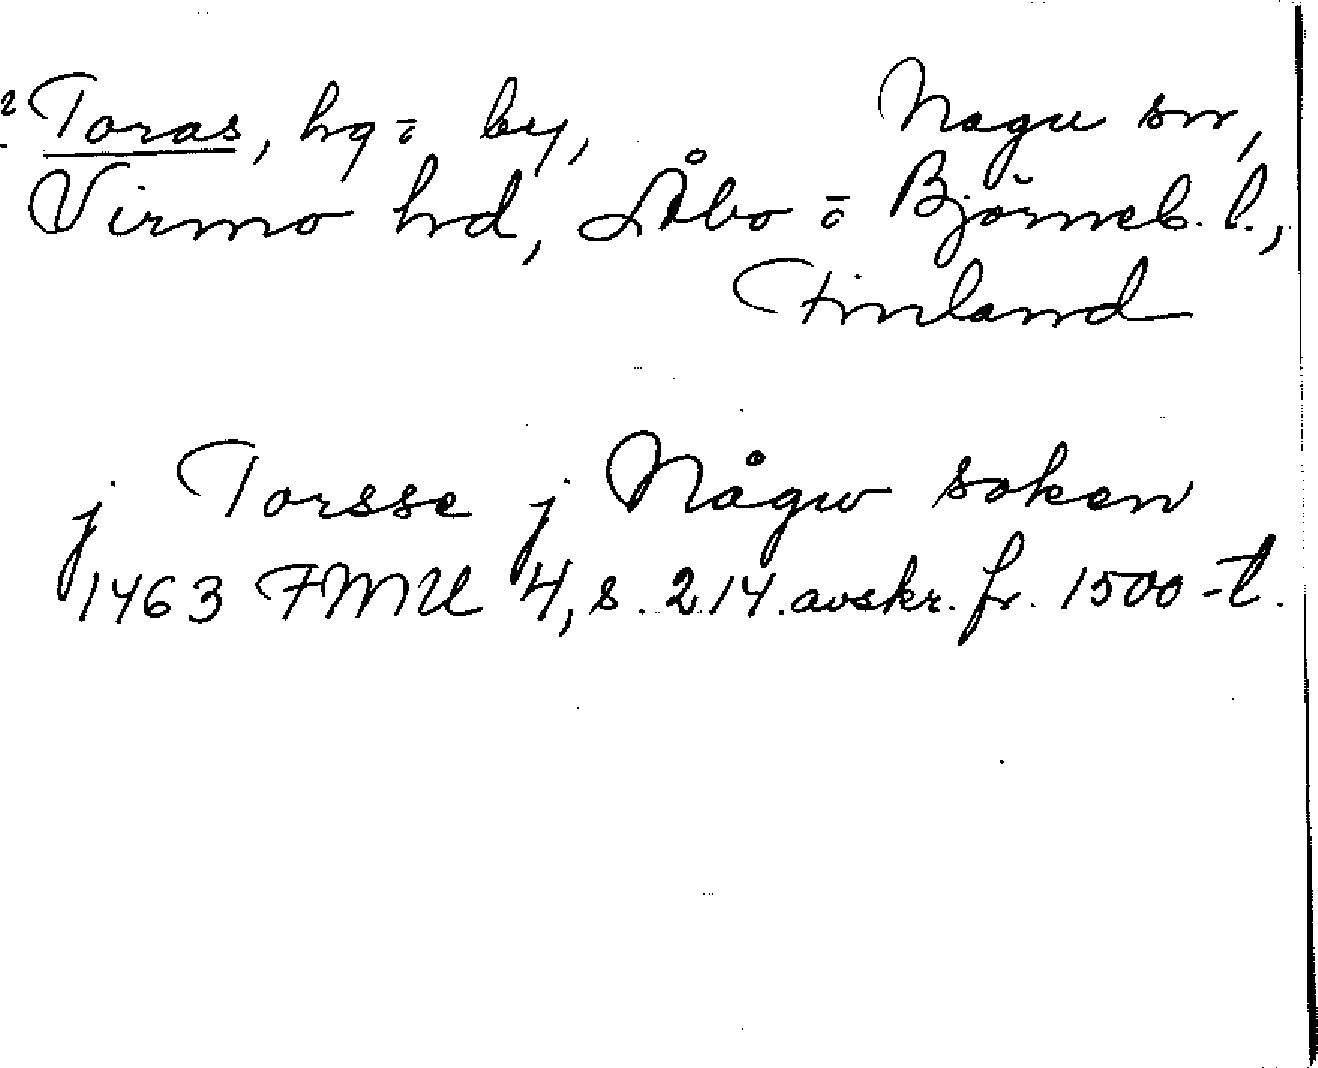 2 Toras, hg ō by, Nagu sn,
Virmo hd, Åbo ō Björneb. l.,
Finland
j Torsse j Någw soken
1463 FMU 4, s. 214. avskr. fr. 1500-t.